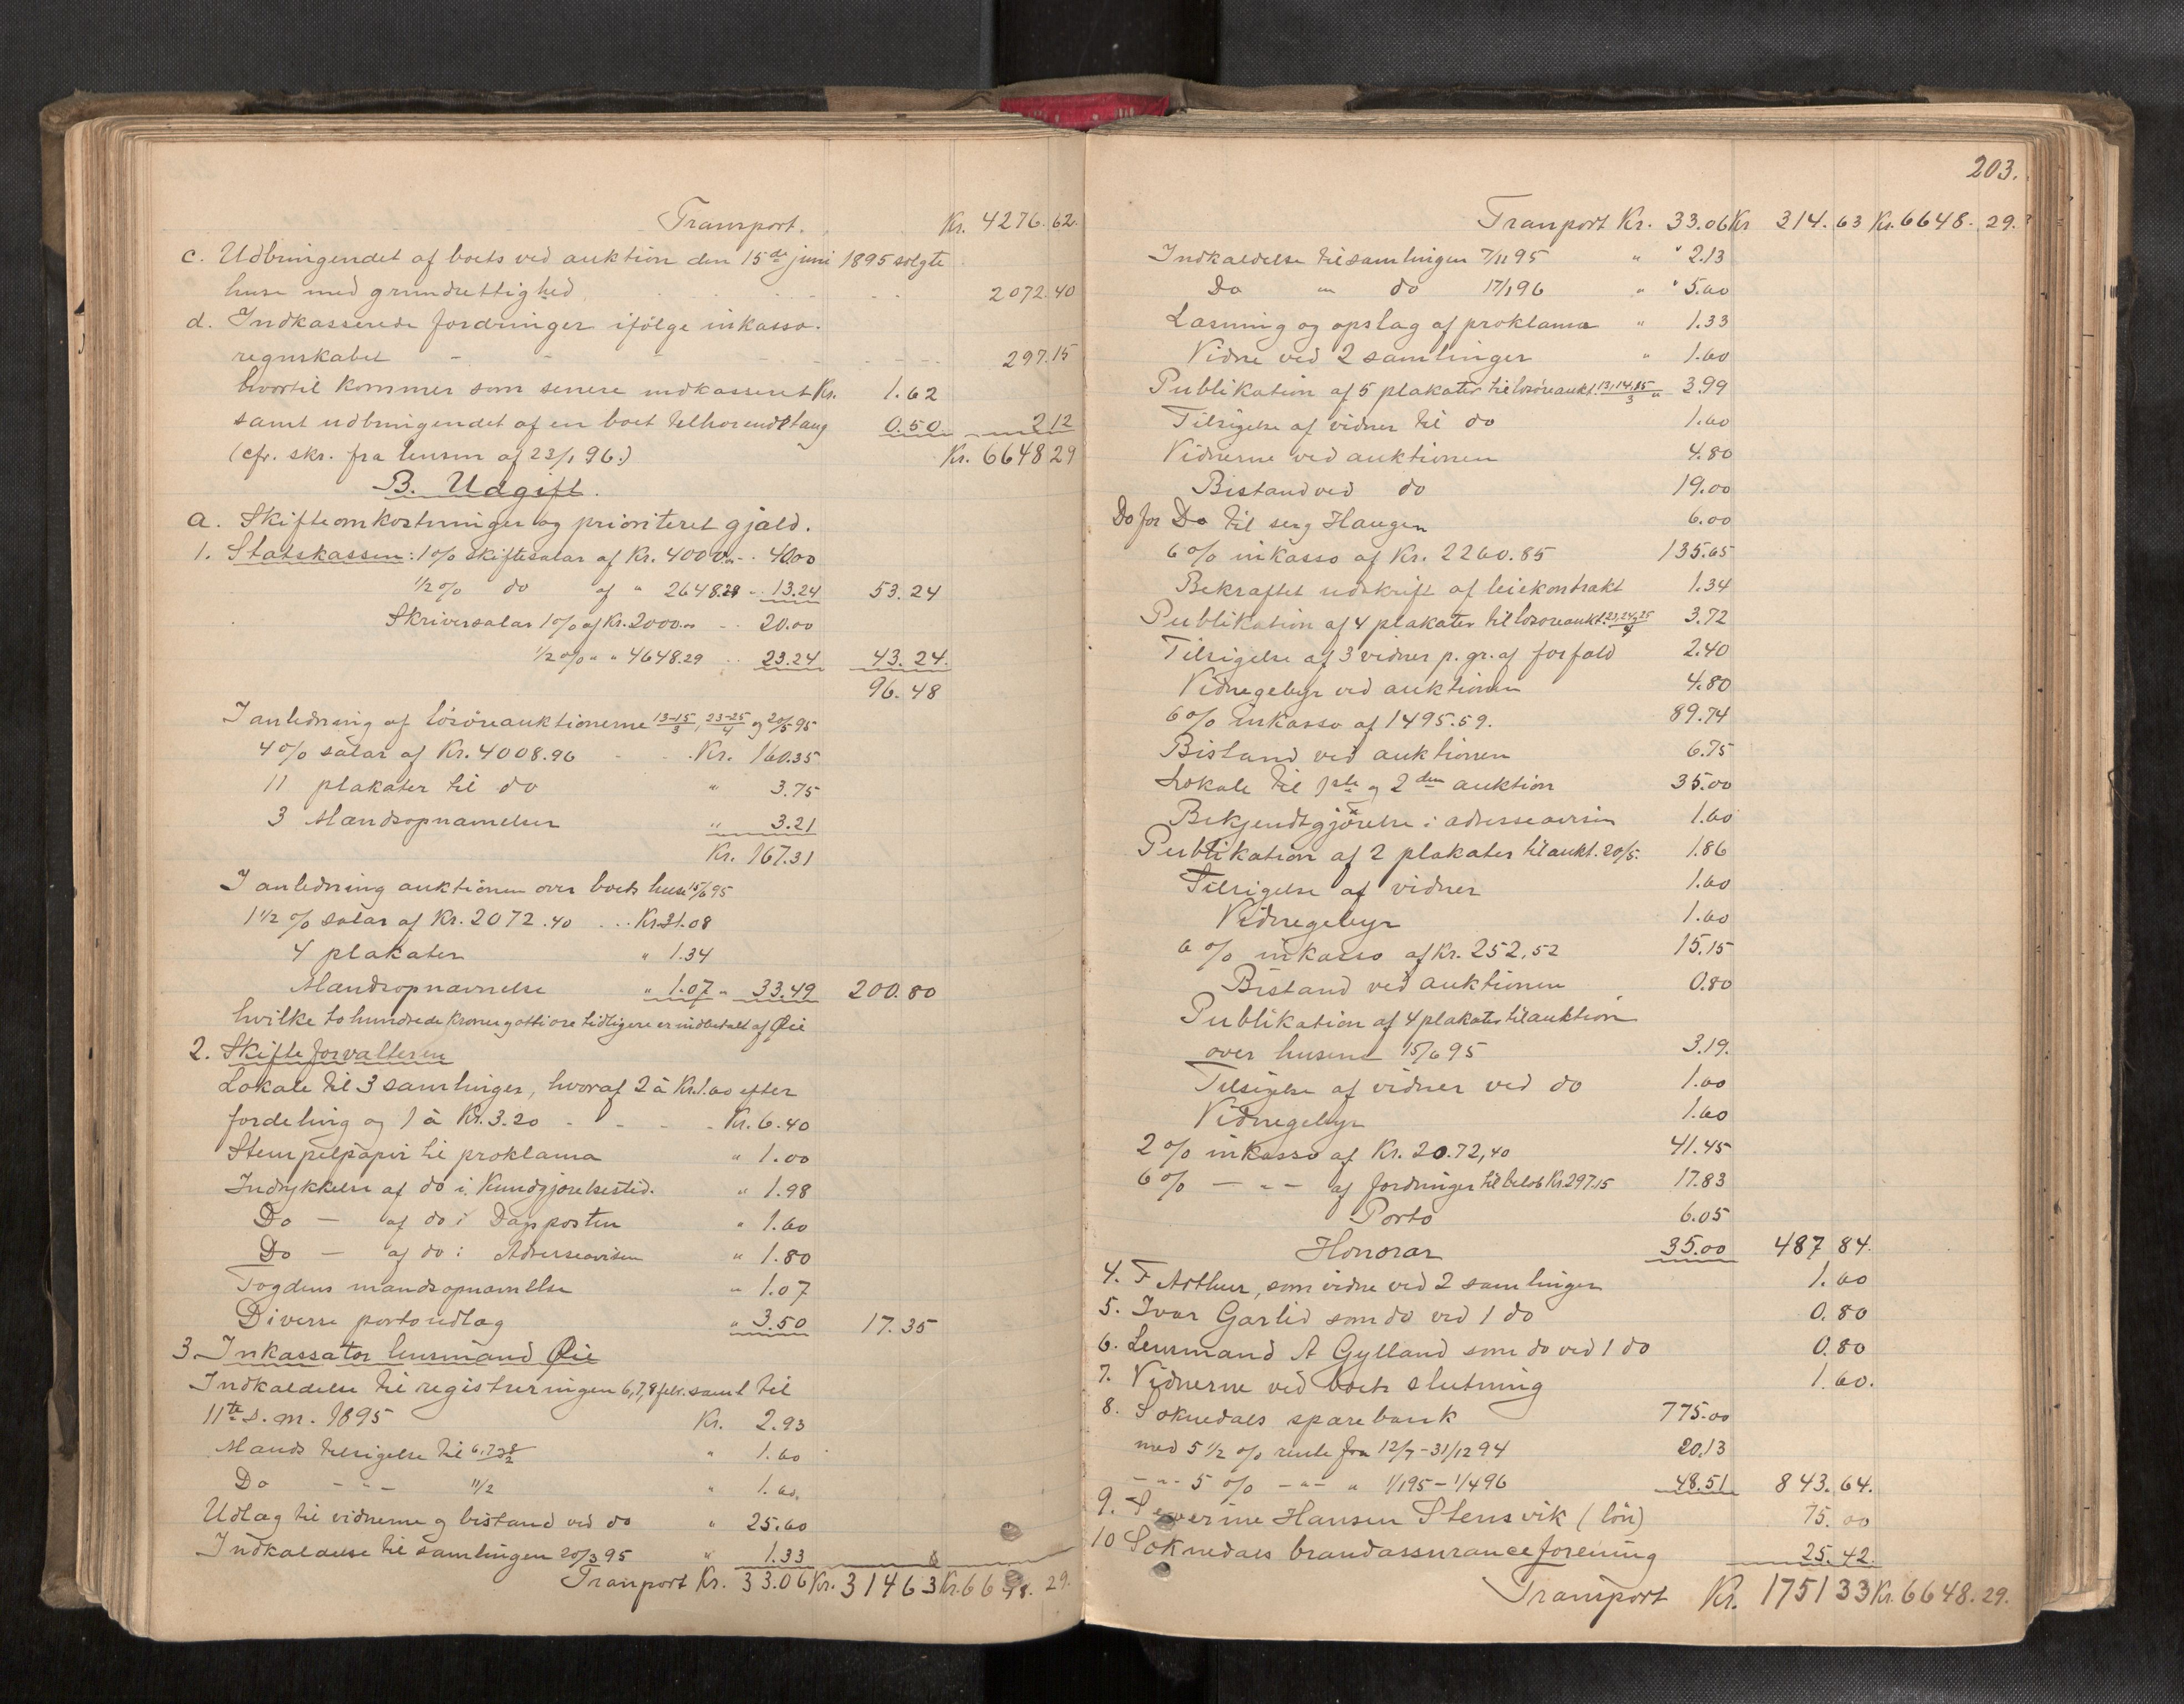 Transport. Kr. 4276.62.
c. Udbringendet af boets ved auktion den 15de juni 1895 solgte
huse med grundrettighed 2072.40
d. Indkasserede fordringer ifølge inkasso-
regnskabet - - - - - 297.15
hvortil kommer som senere indkasseret Kr. 1.62
samt udbringendet af en boet tilhørende taug 0.50 2 12
(cfr. skr. fra lensm af 23/1 96.) Kr. 6648 29
B. Udgift.
a. Skifteomkostninger og prioriteret gjæld.
1. Statskassen: 1% skiftesalær af Kr. 4000.- 40.00
1/2 % do af " 2648.29 - 13.24 53.24
Skriversalær 1% af Kr. 2000.- - 20.00
1/2 % " " 4648.29 - 23.24 43.24.
96.48
I anledning af løsøreauktionerne 13-15/3, 23-25/4 og 20/5 95
4 % salær af Kr. 4008.96 - - Kr. 160.35
11 plakater til do " 3.75
3 Mandsopnævnelser " 3.21
Kr. 167.31
I anledning auktionen over boets huse 15/6 95
1 1/2 % salær af Kr. 2072.40 ... Kr. 31.08
4 plakater " 1.34
Mandsopnævnelse " 1.07 " 33.49 200.80
hvilke to hundrede kroner og otti øre tidligere er indbetalt af Øie
2. Skifteforvalteren
Lokale til 3 samlinger, hvoraf 2 à Kr. 1.60 efter
fordeling og 1 à Kr. 3.20 - - - - Kr. 6.40
Stempelpapir til proklama " 1.00
Indrykkelse af do i Kundgjørelsestid. " 1.98
Do — af do i Dagsposten " 1.60
Do — af do i Adresseavisen " 1.80
Fogdens mandsopnævnelse " 1.07
Diverse portoudlæg " 3.50 17.35
3. Inkassator lensmand Øie
Indkaldelse til registreringen 6,7,8 febr. samt til
11te s. m. 1895 Kr. 2.93
Mands tilsigelse til 6,7 og 8/2 " 1.60
Do - - - 11/2 " 1.60.
Udlæg til vidnerne og bistand ved do " 25.60
Indkaldelse til samlingen 20/3 95 " 1.33
Tranport Kr. 33.06 Kr. 314 63 Kr. 6648. 29.
203.
Tranport Kr. 33.06 Kr 314.63 Kr. 6648. 29.
Indkaldelse til samlingen 7/11 95 " " 2.13
Do " do 17/1 96 " " 5.60
Læsning og opslag af proklama " 1.33
Vidne ved 2 samlinger " 1.60
Publikation af 5 plakater til løsøreaukt. 13,14,15/3 " 3.99
Tilsigelse af vidner til do 1.60
Vidnerne ved auktionen 4.80
Bistand ved do 19.00
Do for Do til serg Haugen 6.00
6 % inkasso af Kr. 2260.85 135.65
Bekræftet udskrift af leiekontrakt 1.34
Publikation af 4 plakater til løsøreaukt. 23,24,25/4 3.72
Tilsigelse af 3 vidner p. gr. af forfald 2.40
Vidnegebyr ved auktionen 4.80
6 % inkasso af 1495.59. 89.74
Bistand ved auktionen 6.75
Lokale til 1ste og 2den auktion 35.00
Bekjendtgjørelse i adresseavisen 1.60
Publikation af 2 plakater til aukt. 20/5. 1.86
Tilsigelse af vidner 1.60
Vidnegebyr 1.60
6 % inkasso af Kr. 252,52 15.15
Bistand ved auktionen 0.80
Publikation af 4 plakater til auktion
over husene 15/6 95 3.19.
Tilsigelse af vidner ved do 1.60
Vidnegebyr 1.60
2 % inkasso af Kr. 20.72,40 41.45
6 % — " — af fordringer til beløb Kr. 297.15 17.83
Porto 6.05
Honorar 35.00 487 84.
4. F Arthur, som vidne ved 2 samlinger 1.60
5. Ivar Garlid som do ved 1 do 0.80
6. Lensmand A Gylland som do ved 1 do 0.80
7. Vidnerne ved boets slutning 1.60.
8. Soknedals sparebank 775.00
med 5 1/2 % rente fra 12/7 - 31/12 94 20.13
- " - 5 % - " - " 1/1 95 - 1/4 96 48.51 843.64.
9. Severine Hansen Stensvik (løn) 75.00
10 Soknedals brandassuranceforening 25.42.
Transport Kr. 1751 33 Kr. 6648.29.